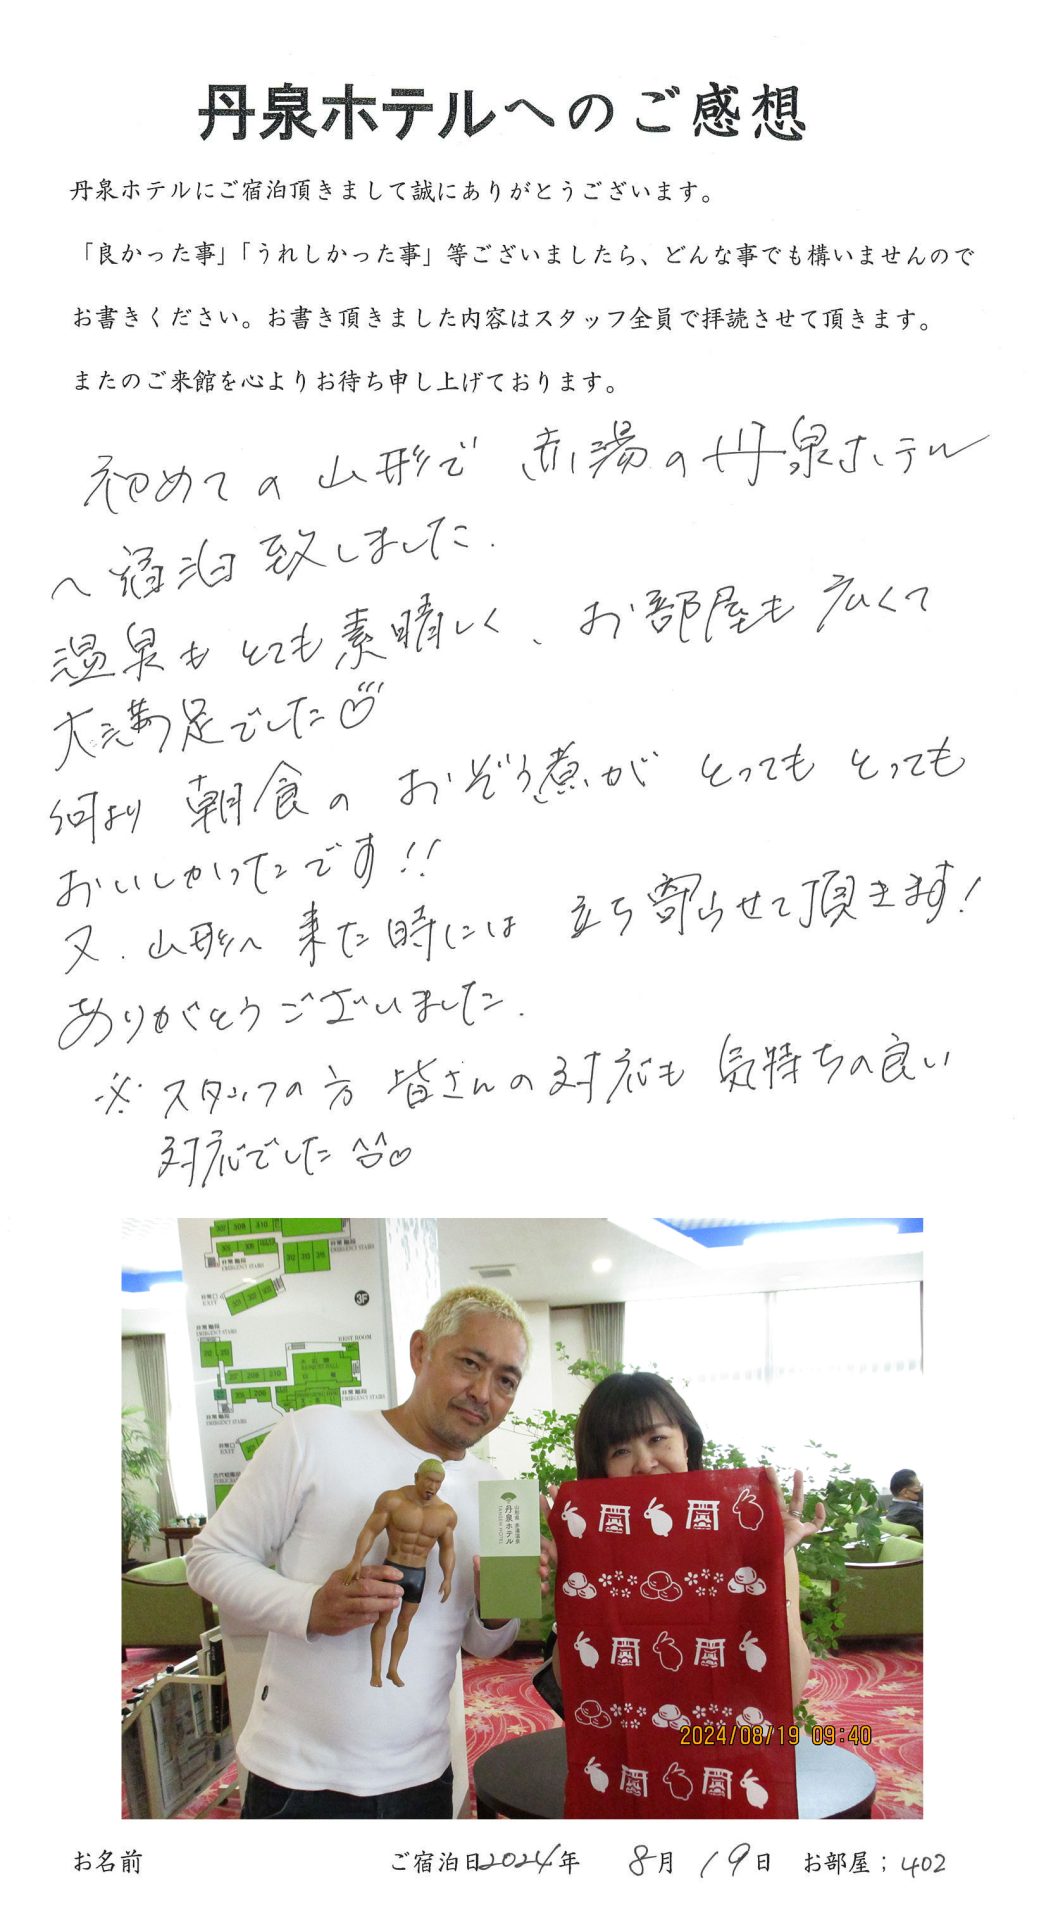 丹泉ホテルへのご感想
丹泉ホテルにご宿泊頂きまして誠にありがとうございます。
「良かった事」「うれしかった事」等ございましたら、どんな事でも構いませんので
お書きください。お書き頂きました内容はスタッフ全員で拝読させて頂きます。
またのご来館を心よりお待ち申し上げております。
初めての山形で 赤湯の丹泉ホテル
へ宿泊致しました.
温泉もとても素晴しく、お部屋も広くて
大満足でした
何より朝食のおぞう煮がとってもとっても
おいしかったです!!
又、山形へ来た時には立ち寄らせて頂きます!
ありがとうございました.
※スタッフの方皆さんの対応も気持ちの良い
対応でした
309 310
非常階段
EMERGENCY STAIRS
312 313 315
非常口
EXIT
301 302
3F
非常階段
EMERGENCY STAIRS
REST ROOM
BANQUET HALL
207 208 210
205 206
非常階段
EMERGENCY STAIRS
非常階段
EMERGENCY STAIRS
非常口
EXIT
山形県 赤湯温泉
丹泉ホテル
TANSEN HOTEL
2024/08/19 09:40
お名前 ご宿泊日2024年 8月 19日 お部屋;402